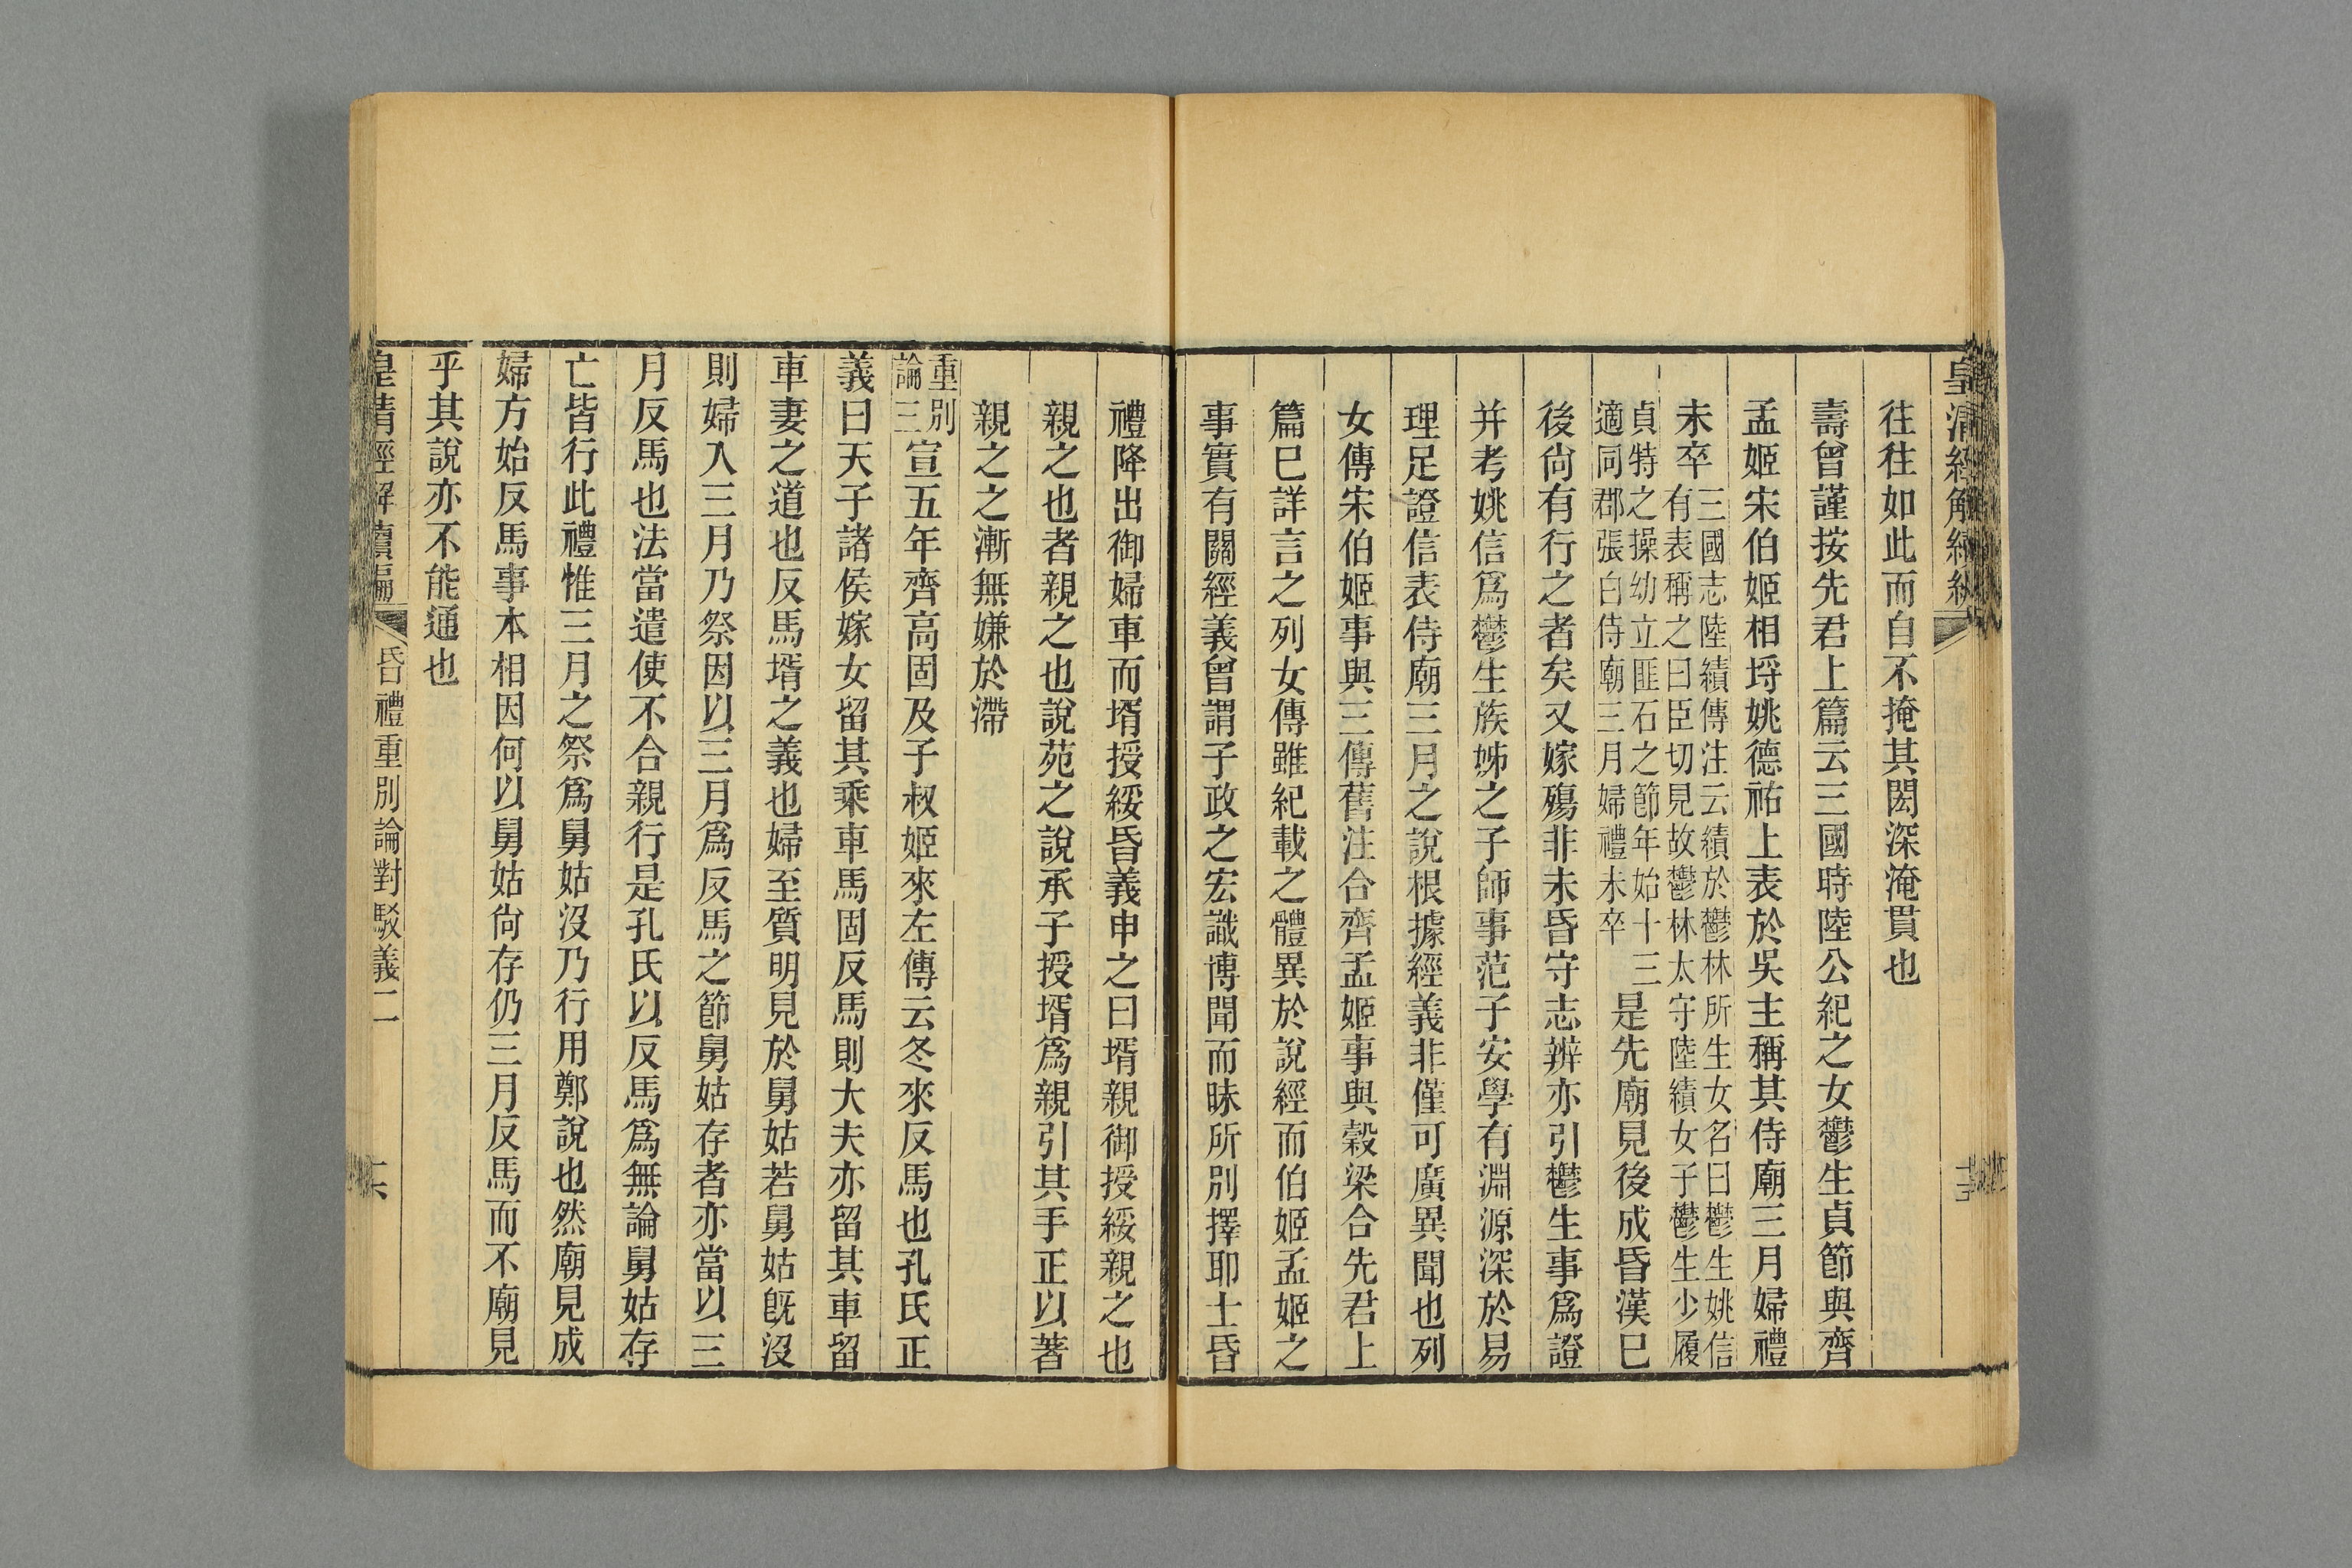 皇清經解續編
往往如此而自不掩其閎深淹貫也
壽曾謹按先君上篇云三國時陸公紀之女鬱生貞節與齊
孟姬宋伯姬相埒姚德祐上表於吳主稱其侍廟三月婦禮
未卒三國志陸績傳注云績於鬱林所生女名曰鬱生姚信
有表稱之曰臣切見故鬱林太守陸績女子鬱生少履
貞特之操幼立匪石之節年始十三
適同郡張白侍廟三月婦禮未卒是先廟見後成昏漢巳
後尙有行之者矣又嫁殤非未昏守志辨亦引鬱生事爲證
并考姚信爲鬱生族姊之子師事范子安學有淵源深於易
理足證信表侍廟三月之說根據經義非僅可廣異聞也列
女傳宋伯姬事與三傳舊注合齊孟姬事與穀梁合先君上
篇巳詳言之列女傳雖紀載之體異於說經而伯姬孟姬之
事實有關經義曾謂子政之宏識博聞而昧所別擇耶士昏
禮降出御婦車而壻授綏昏義申之曰壻親御授綏親之也
親之也者親之也說苑之說承子授壻爲親引其手正以著
親之之漸無嫌於滯
重別
論三宣五年齊高固及子叔姬來左傳云冬來反馬也孔氏正
義曰天子諸侯嫁女留其乘車馬固反馬則大夫亦留其車留
車妻之道也反馬壻之義也婦至質明見於舅姑若舅姑旣沒
則婦入三月乃祭因以三月爲反馬之節舅姑存者亦當以三
月反馬也法當遣使不合親行是孔氏以反馬爲無論舅姑存
亡皆行此禮惟三月之祭爲舅姑沒乃行用鄭說也然廟見成
婦方始反馬事本相因何以舅姑尙存仍三月反馬而不廟見
乎其說亦不能通也
皇清經解續編
昏禮重別論對駁義二